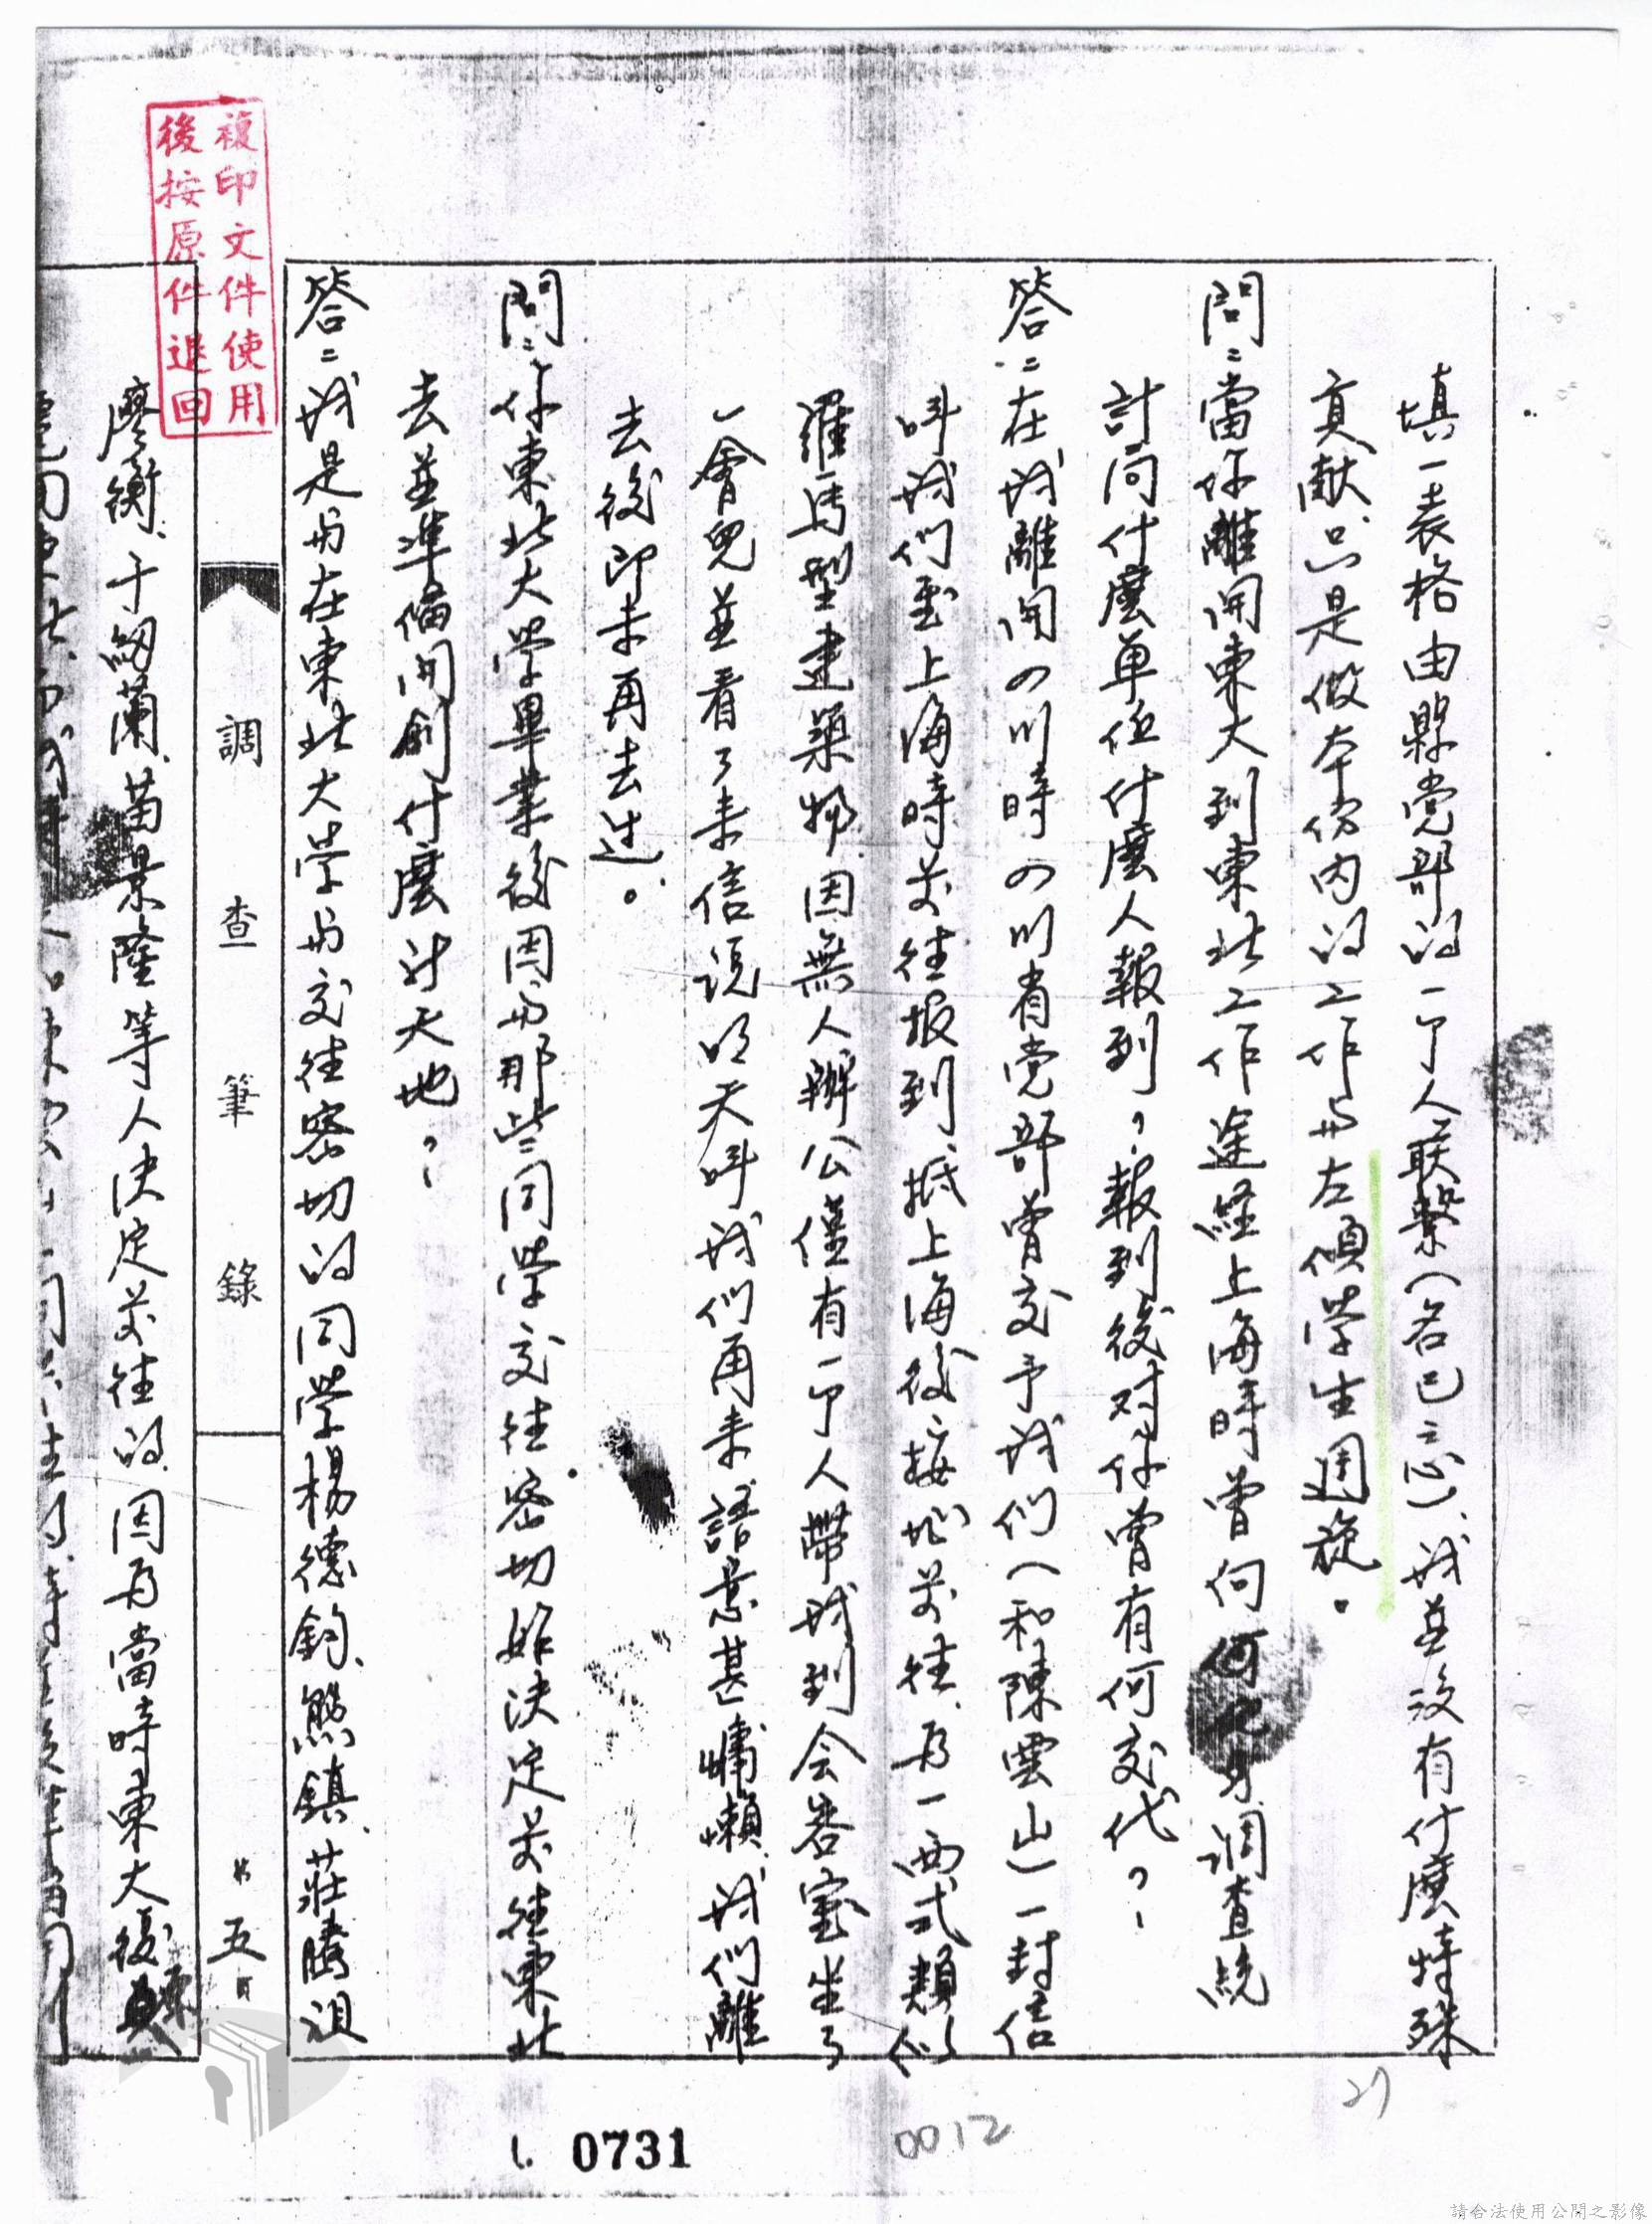 填一表格由縣党部的一个人联繫(名已忘)、我並沒有什麼特殊
貢献、只是做本份内的工作与左傾学生週旋。
問：當你離開東大到東北工作途經上海時曾向何 調查統
計局什麼單位什麼人報到？報到後对你曾有何交代？
答：在我離開四川時四川省党部曾交予我們(和陳雲山)一封信
叫我們到上海時前往报到、抵上海後、按址前往、為一西式類似
羅馬型建築物、因無人辦公僅有一个人帶我到会客室坐了
一會兒並看了来信説明天叫我們再来、語意甚慵懶、我們離
去後即未再去过。
問：你東北大学畢業後因与那些同学交往密切始決定前往東北
去並準備開創什麼新天地？
答：我是与在東北大学与交往密切的同学楊德鈞、熊鎮、莊騰祖
調查筆錄
第五頁
廖衡、于 蘭、苗景隆等人決定前往的、因為當時東大復員
複印文件使用
後按原件退回
0731
0012
27
請合法使用公開之影像